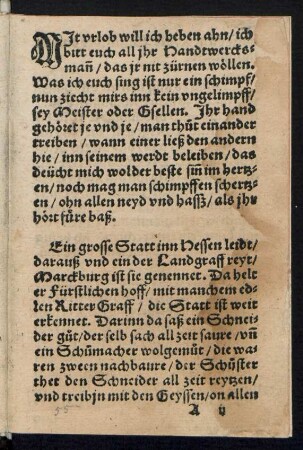 MIt vrlob will ich heben ahn/ ich
bitt euch all jhr Handtwercks-
mañ/ das jr nit zürnen wöllen.
Was ich euch sing ist nur ein schimpf/
nun ziecht mirs inn kein vngelimpff/
sey Meister oder Gsellen. Jhr hand
gehöret je vnd je/ man thüt einander
treiben/ wann einer ließ den andern
hie/ inn seinem werdt beleiben/ das
deücht mich wol der beste siñ im hertz-
en/ noch mag man schimpffen schertz-
en/ ohn allen neyd vnd hassz/ als jhr
hört füre baß.
Ein grosse Statt inn Hessen leidt/
darauß vnd ein der Landgraff reyt/
Marckburg ist sie genennet. Da helt
er Fürstlichen hoff/ mit manchem ed-
len Ritter Graff/ die Statt ist weit
erkennet. Darinn da saß ein Schnei-
der güt/ der selb sach all zeit saure/ vñ
ein Schümacher wolgemüt/ die wa-
ren zween nachbaure/ der Schüster
thet den Schneider all zeit reytzen/
vnd treibjn mit den Geyssen/ on allen
A ij